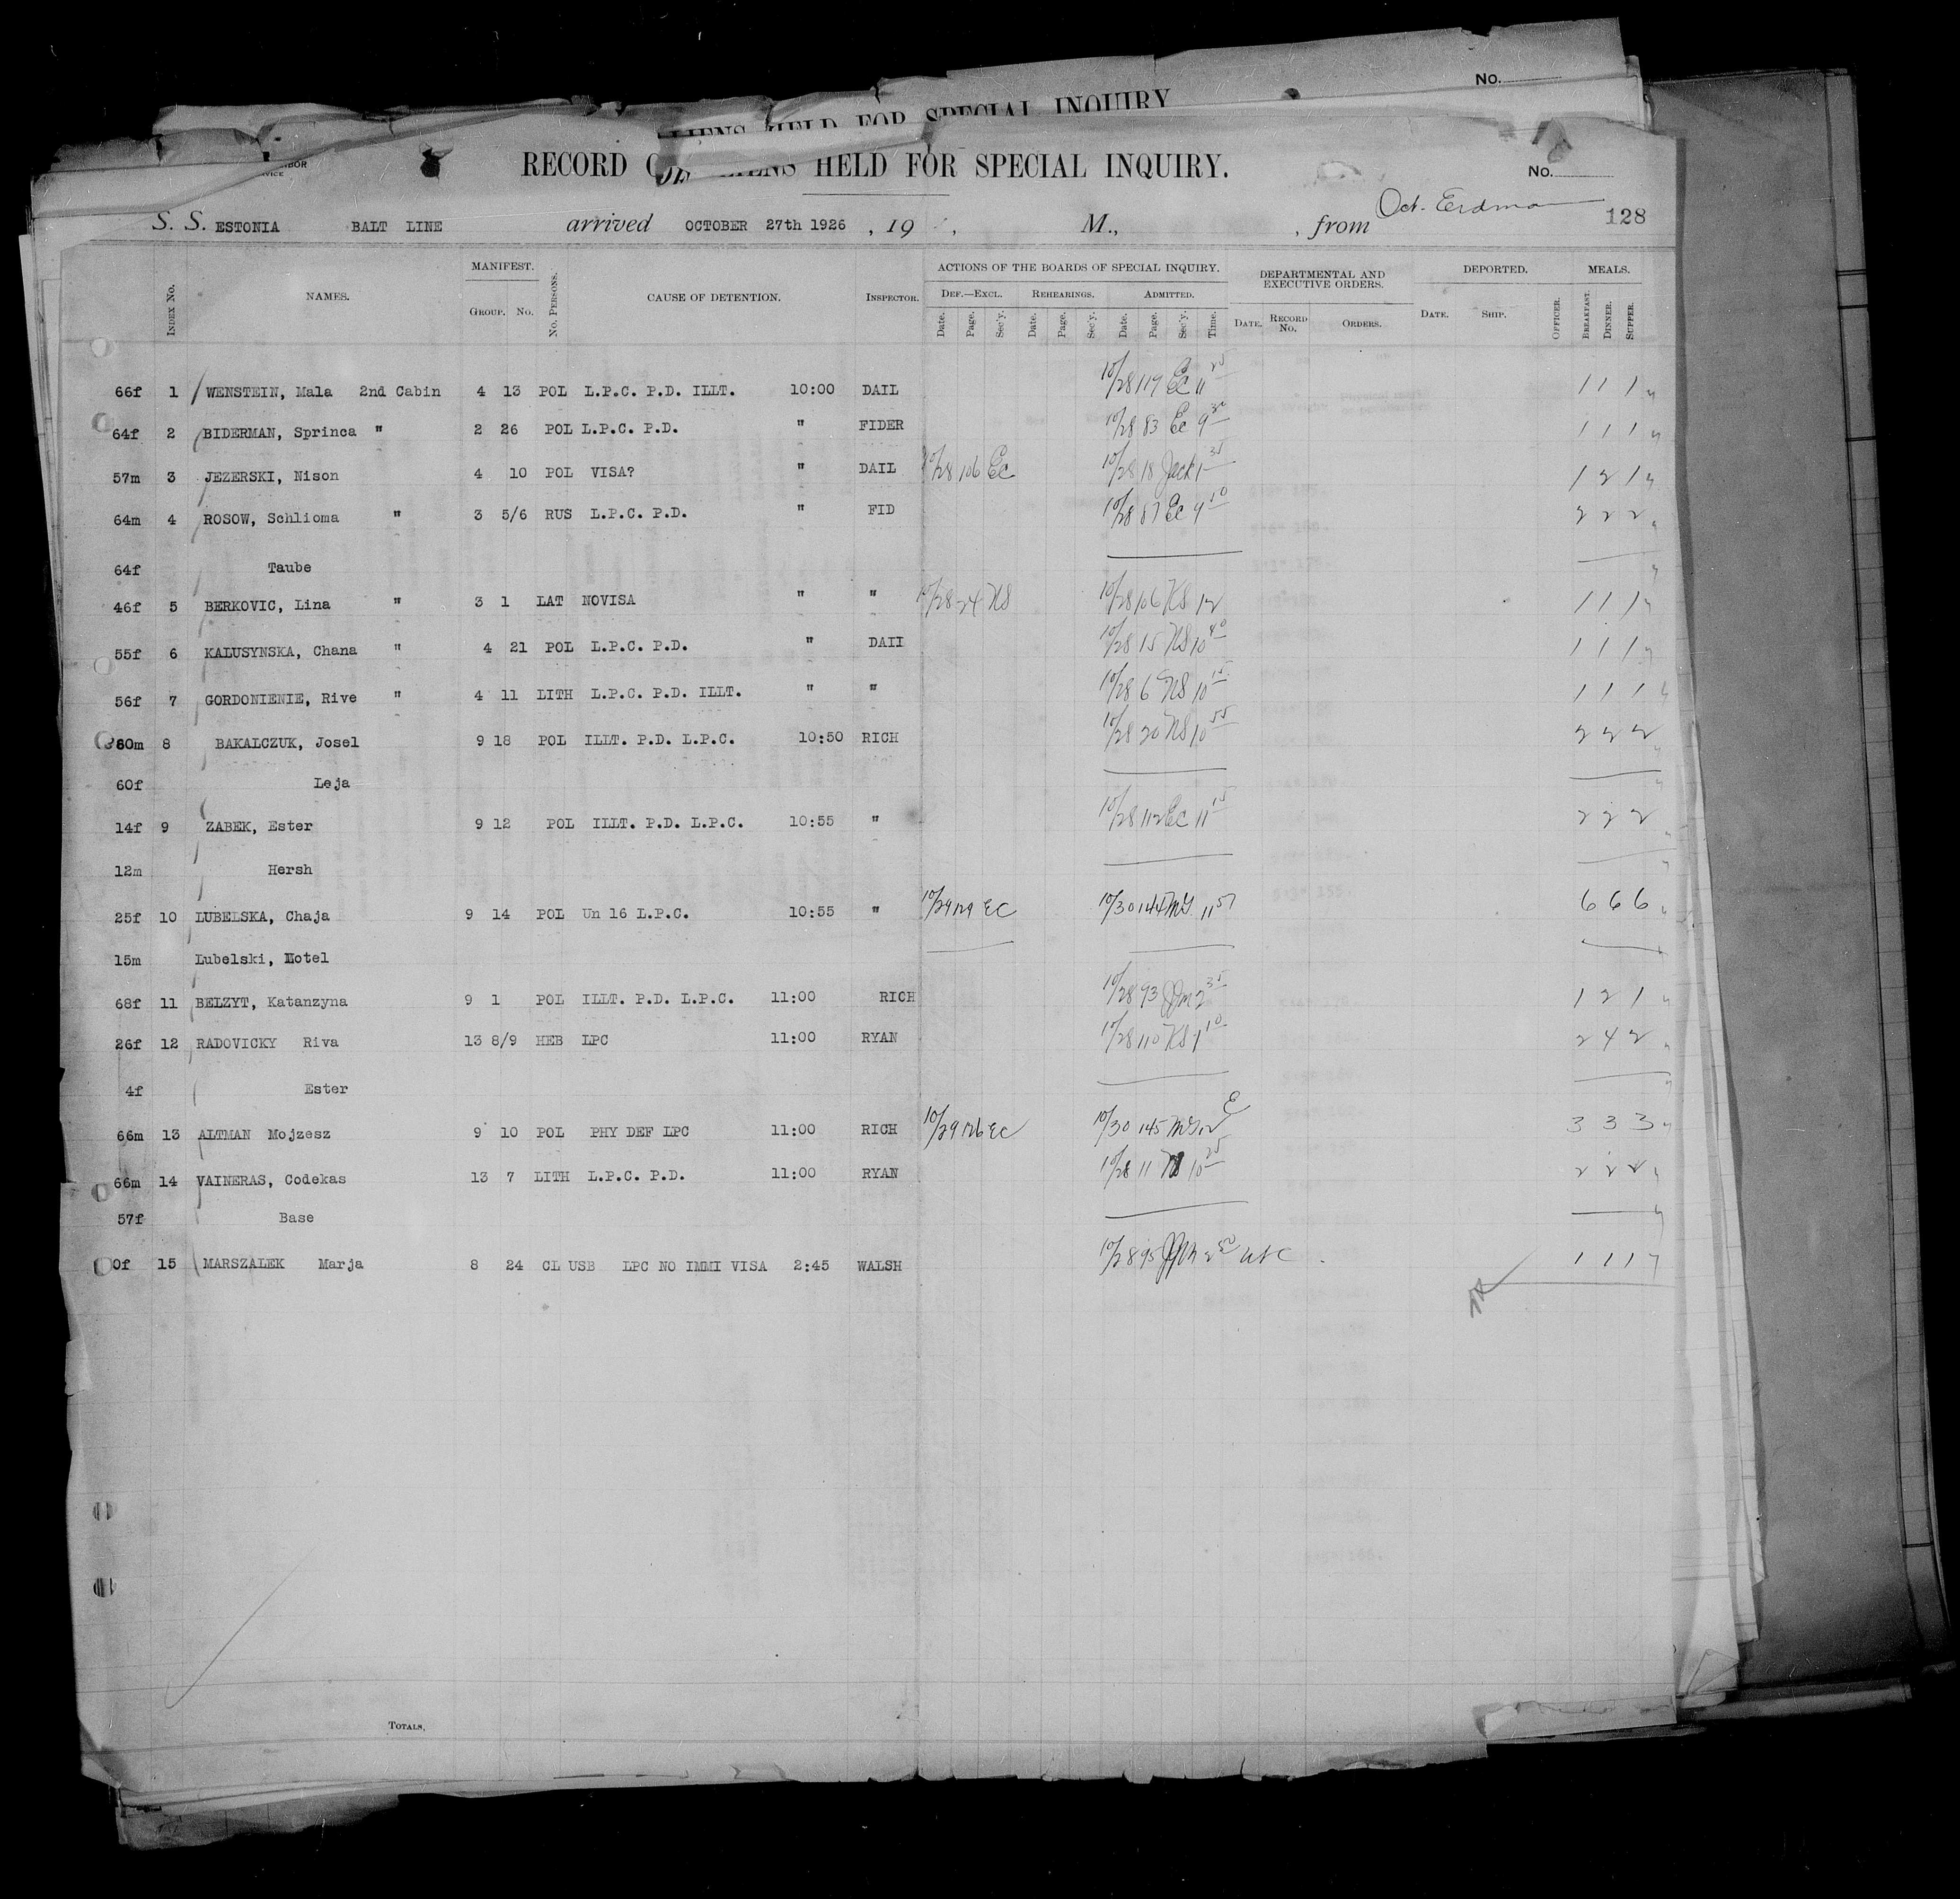 No.
LIENS HELD FOR SPECIAL INQUIRY
RECORD OF ALIENS HELD FOR SPECIAL INQUIRY.
No.
S. S. ESTONIA BALT LINE arrived OCTOBER 27th 1926 , 19 , M., , from Oct. Erdman 128
Index No. NAMES. MANIFEST. Group. No. No. Persons. CAUSE OF DETENTION. Inspector. ACTIONS OF THE BOARDS OF SPECIAL INQUIRY. DEPARTMENTAL AND EXECUTIVE ORDERS. DEPORTED. MEALS.
Def.—Excl. Rehearings. Admitted.
Date. Page. Sec'y. Date. Page. Sec'y. Date. Page. Sec'y. Time. Date. Record No. Orders. Date. Ship. Officer. Breakfast. Dinner. Supper.
66f 1 WENSTEIN, Mala 2nd Cabin 4 13 POL L.P.C. P.D. ILLT. 10:00 DAIL 10/28 119 EC 11 25 1 1 1
64f 2 BIDERMAN, Sprinca " 2 26 POL L.P.C. P.D. " FIDER 10/28 83 EC 9 30 1 1 1
57m 3 JEZERSKI, Nison 4 10 POL VISA? " DAIL 10/28 106 EC 10/28 18 Jack 1 35 1 2 1
64m 4 ROSOW, Schlioma " 3 5/6 RUS L.P.C. P.D. " FID 10/28 87 EC 9 10 2 2 2
64f Taube
46f 5 BERKOVIC, Lina " 3 1 LAT NOVISA " " 10/28 24 KS 10/28 106 KS 12 1 1 1
55f 6 KALUSYNSKA, Chana " 4 21 POL L.P.C. P.D. " DAII 10/28 15 KS 10 40 1 1 1
56f 7 GORDONIENIE, Rive " 4 11 LITH L.P.C. P.D. ILLT. " " 10/28 6 KS 10 15 1 1 1
60m 8 BAKALCZUK, Josel 9 18 POL ILLT. P.D. L.P.C. 10:50 RICH 10/28 20 KS 10 55 2 2 2
60f Leja
14f 9 ZABEK, Ester 9 12 POL ILLT. P.D. L.P.C. 10:55 " 10/28 112 EC 11 15 2 2 2
12m Hersh
25f 10 LUBELSKA, Chaja 9 14 POL Un 16 L.P.C. 10:55 " 10/29 129 EC 10/30 144 MG 11 57 6 6 6
15m Lubelski, Motel
68f 11 BELZYT, Katanzyna 9 1 POL ILLT. P.D. L.P.C. 11:00 RICH 10/28 93 JJM 2 35 1 2 1
26f 12 RADOVICKY Riva 13 8/9 HEB LPC 11:00 RYAN 10/28 110 KS 1 10 2 4 2
4f Ester
66m 13 ALTMAN Mojzesz 9 10 POL PHY DEF LPC 11:00 RICH 10/29 126 EC 10/30 145 MG 12 3 3 3
66m 14 VAINERAS, Codekas 13 7 LITH L.P.C. P.D. 11:00 RYAN 10/28 11 10 25 2 2 2
57f Base
0f 15 MARSZALEK Marja 8 24 CL USB LPC NO IMMI VISA 2:45 WALSH 10/28 95 JJM 2 50 1 1 1
Totals,